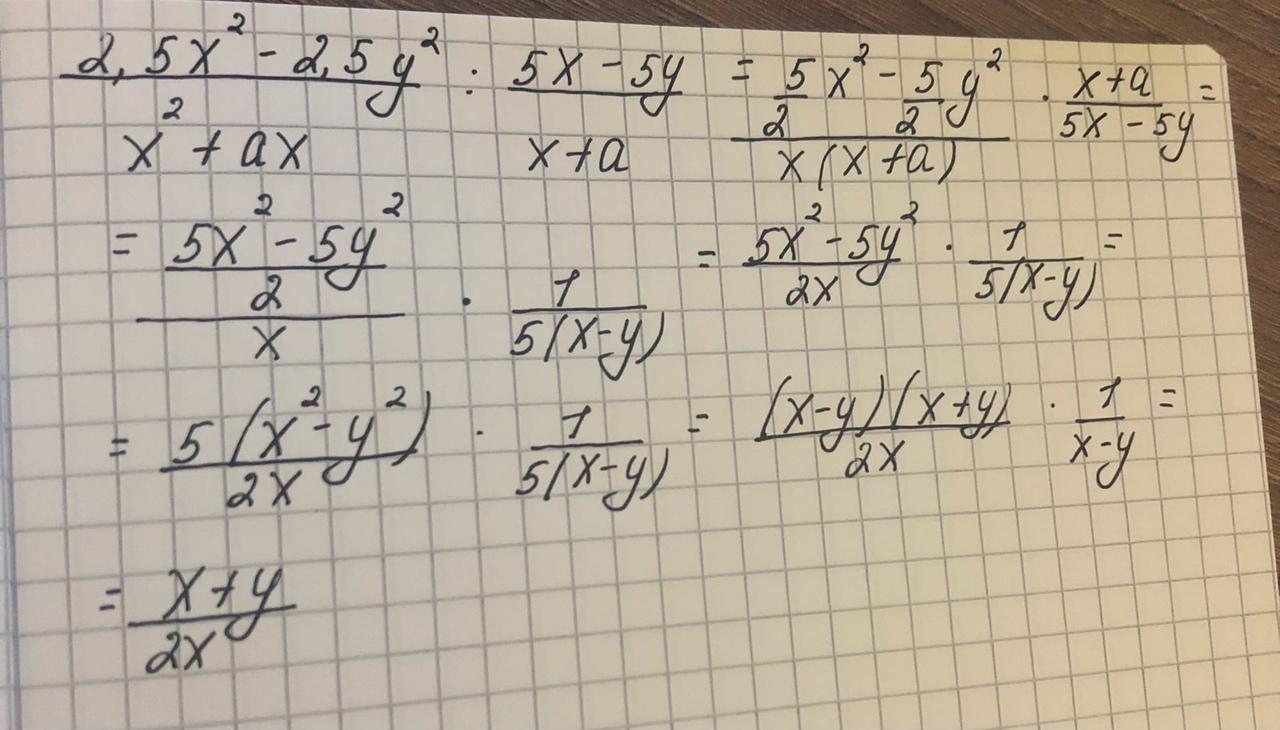 (2,5x² - 2,5y²)/(x² + ax) : (5x - 5y)/(x+a) = (5/2 x² - 5/2 y²)/(x(x+a)) · (x+a)/(5x - 5y) =
= ((5x² - 5y²)/2)/x · 1/(5(x-y)) = (5x² - 5y²)/(2x) · 1/(5(x-y)) =
= 5(x² - y²)/(2x) · 1/(5(x-y)) = (x-y)(x+y)/(2x) · 1/(x-y) =
= (x+y)/(2x)